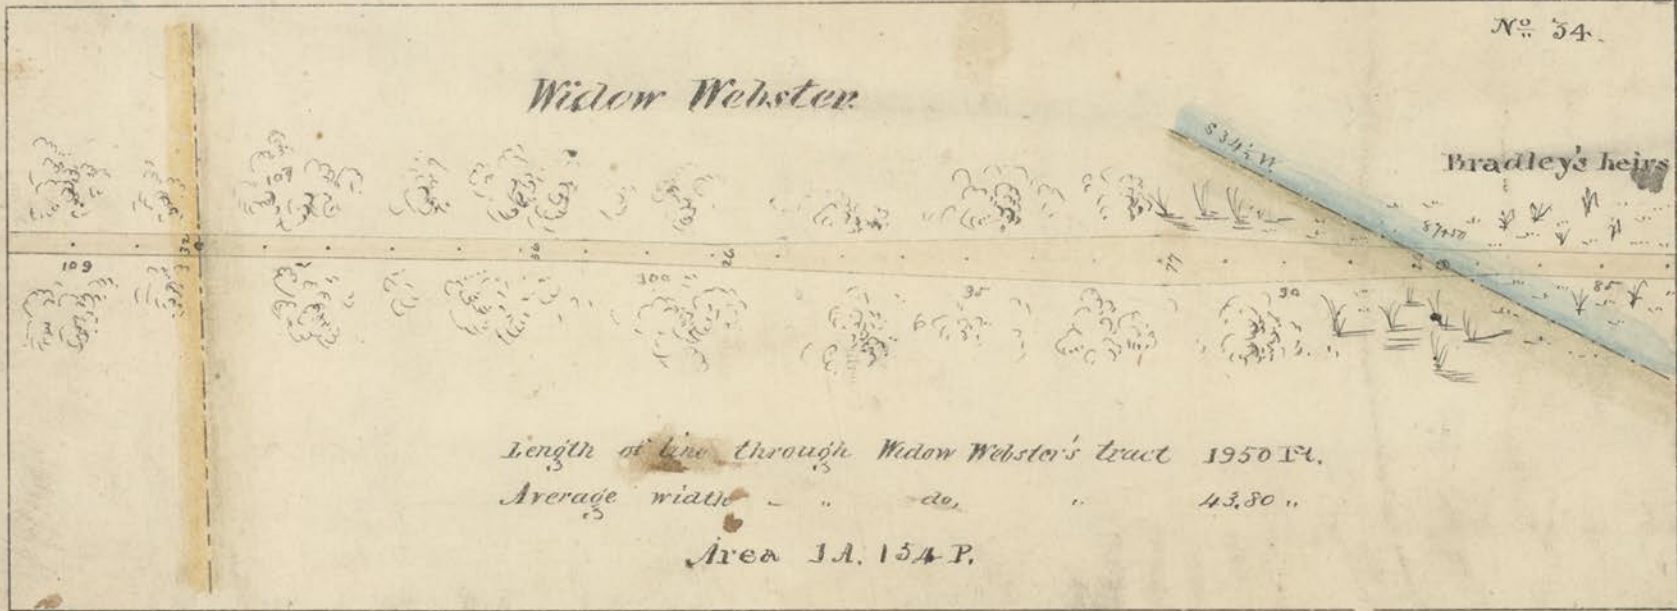 No 34.
Widow Webster.
S 34½ W.
Bradley's heirs
87+50
32
0
26
77
0
109
100
35
30
85
Length of line through Widow Webster's tract 1950 Ft.
Average width - " do, " 43.80 "
Area 1A. 154 P.